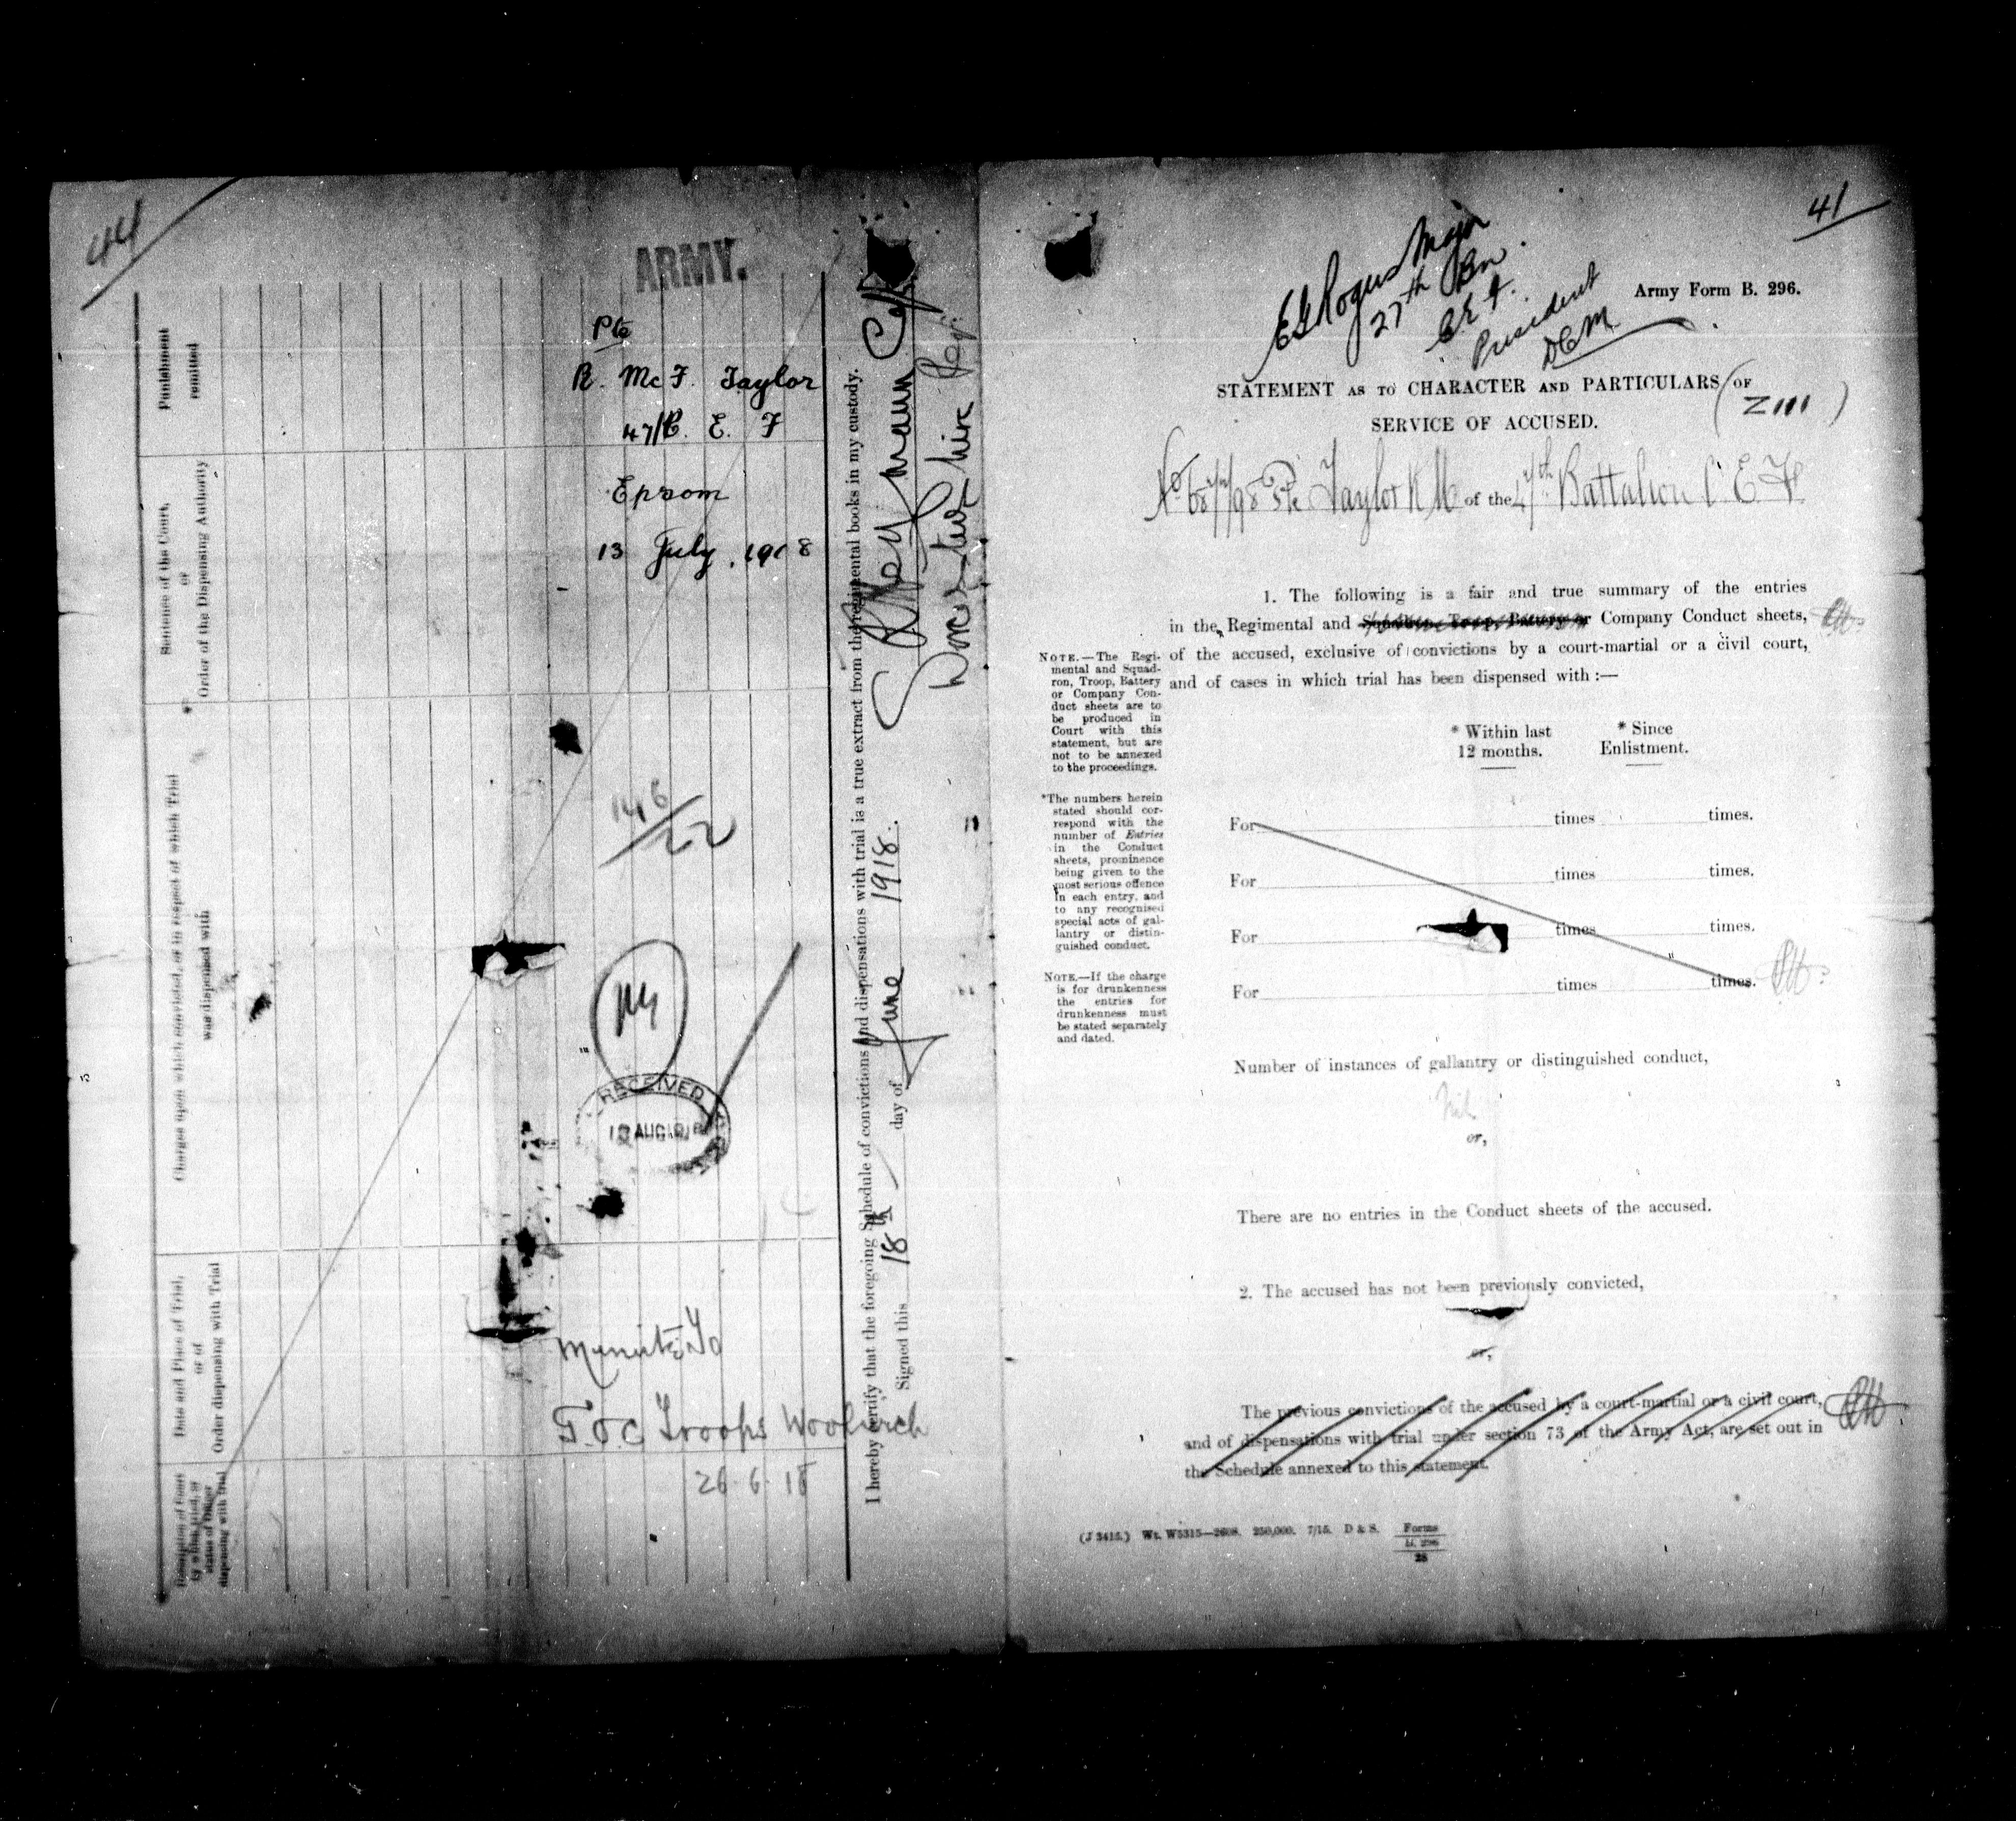 44
ARMY.
Pte
R. McF. Taylor
47/C. E. F
Epsom
13 July, 1918
146/22
RECEIVED
AUG 1918
Minute To
G.O.C Troops Woolwich
26.6.18
Punishment
remitted
Sentence of the Court,
or
Order of the Dispensing Authority
Charges upon which convicted, or in respect of which Trial
was dispensed with
Date and Place of Trial,
or of
Order dispensing with Trial
Description of Court
by which tried, or
status of Officer
dispensing with trial
I hereby certify that the foregoing Schedule of convictions and dispensations with trial is a true extract from the regimental books in my custody.
Signed this 18th day of June 1918.
Capt
Worcestershire Regt.
41
Major
27th Bn
President
DCM
Army Form B. 296.
STATEMENT AS TO CHARACTER AND PARTICULARS OF
SERVICE OF ACCUSED.
Pte Taylor R M of the 47th Battalion C E F
1. The following is a fair and true summary of the entries
in the Regimental and Squadron, Troop, Battery or Company Conduct sheets,
of the accused, exclusive of convictions by a court-martial or a civil court,
and of cases in which trial has been dispensed with :—
NOTE.—The Regi-
mental and Squad-
ron, Troop, Battery
or Company Con-
duct sheets are to
be produced in
Court with this
statement, but are
not to be annexed
to the proceedings.
*The numbers herein
stated should cor-
respond with the
number of Entries
in the Conduct
sheets, prominence
being given to the
most serious offence
in each entry, and
to any recognised
special acts of gal-
lantry or distin-
guished conduct.
NOTE.—If the charge
is for drunkenness
the entries for
drunkenness must
be stated separately
and dated.
* Within last * Since
12 months. Enlistment.
For times times.
For times times.
For times times.
For times times.
Number of instances of gallantry or distinguished conduct,
Nil
or,
There are no entries in the Conduct sheets of the accused.
2. The accused has not been previously convicted,
or,
The previous convictions of the accused by a court-martial or a civil court,
and of dispensations with trial under section 73 of the Army Act, are set out in
the Schedule annexed to this statement.
(J 3415.) Wt. W5315—2608. 250,000. 7/15. D & S. Forms
B. 296
28